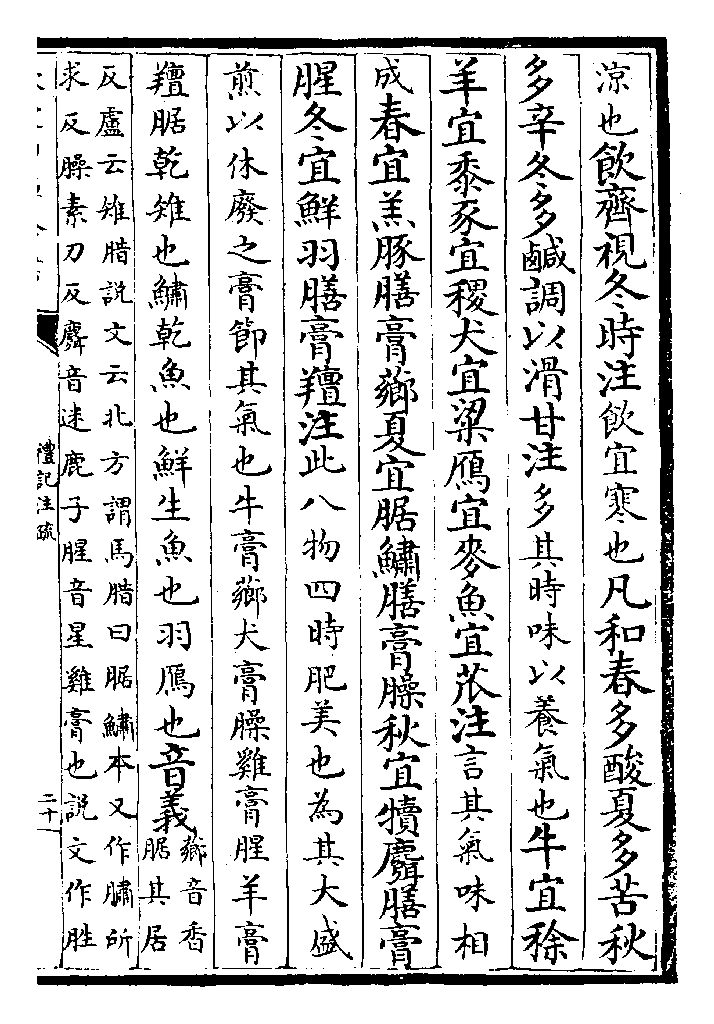 涼也飲齊視冬時注飲宜寒也凡和春多酸夏多苦秋
多辛冬多鹹調以滑甘注多其時味以養氣也牛宜稌
羊宜黍豕宜稷犬宜粱鴈宜麥魚宜苽注言其氣味相
成春宜羔豚膳膏薌夏宜腒鱐膳膏臊秋宜犢麛膳膏
腥冬宜鮮羽膳膏羶注此八物四時肥美也為其大盛
煎以休廢之膏節其氣也牛膏薌犬膏臊雞膏腥羊膏
羶腒乾雉也鱐乾魚也鮮生魚也羽鴈也音義薌音香
腒其居
反盧云雉腊說文云北方謂鳥腊曰腒鱐本又作䐹所
求反臊素刀反麛音迷鹿子腥音星雞膏也說文作胜
禮記注疏
二十一